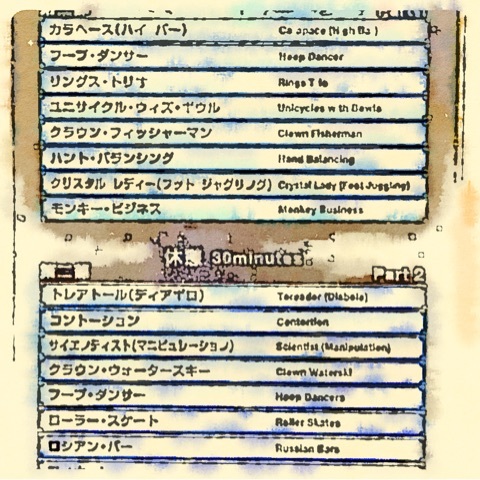 カラペース(ハイ バー) Carapace (High Bar)
フープ・ダンサー Hoop Dancer
リングス・トリオ Rings Trio
ユニサイクル・ウィズ・ボウル Unicycles with Bowls
クラウン・フィッシャーマン Clown Fisherman
ハンド・バランシング Hand Balancing
クリスタル レディー(フット ジャグリング) Crystal Lady (Foot Juggling)
モンキー・ビジネス Monkey Business
休憩 30minutes
Part 2
トレアドール(ディアボロ) Toreador (Diabolo)
コントーション Contortion
サイエンティスト(マニピュレーション) Scientist (Manipulation)
クラウン・ウォータースキー Clown Waterski
フープ・ダンサー Hoop Dancers
ローラー・スケート Roller Skates
ロシアン・バー Russian Bars